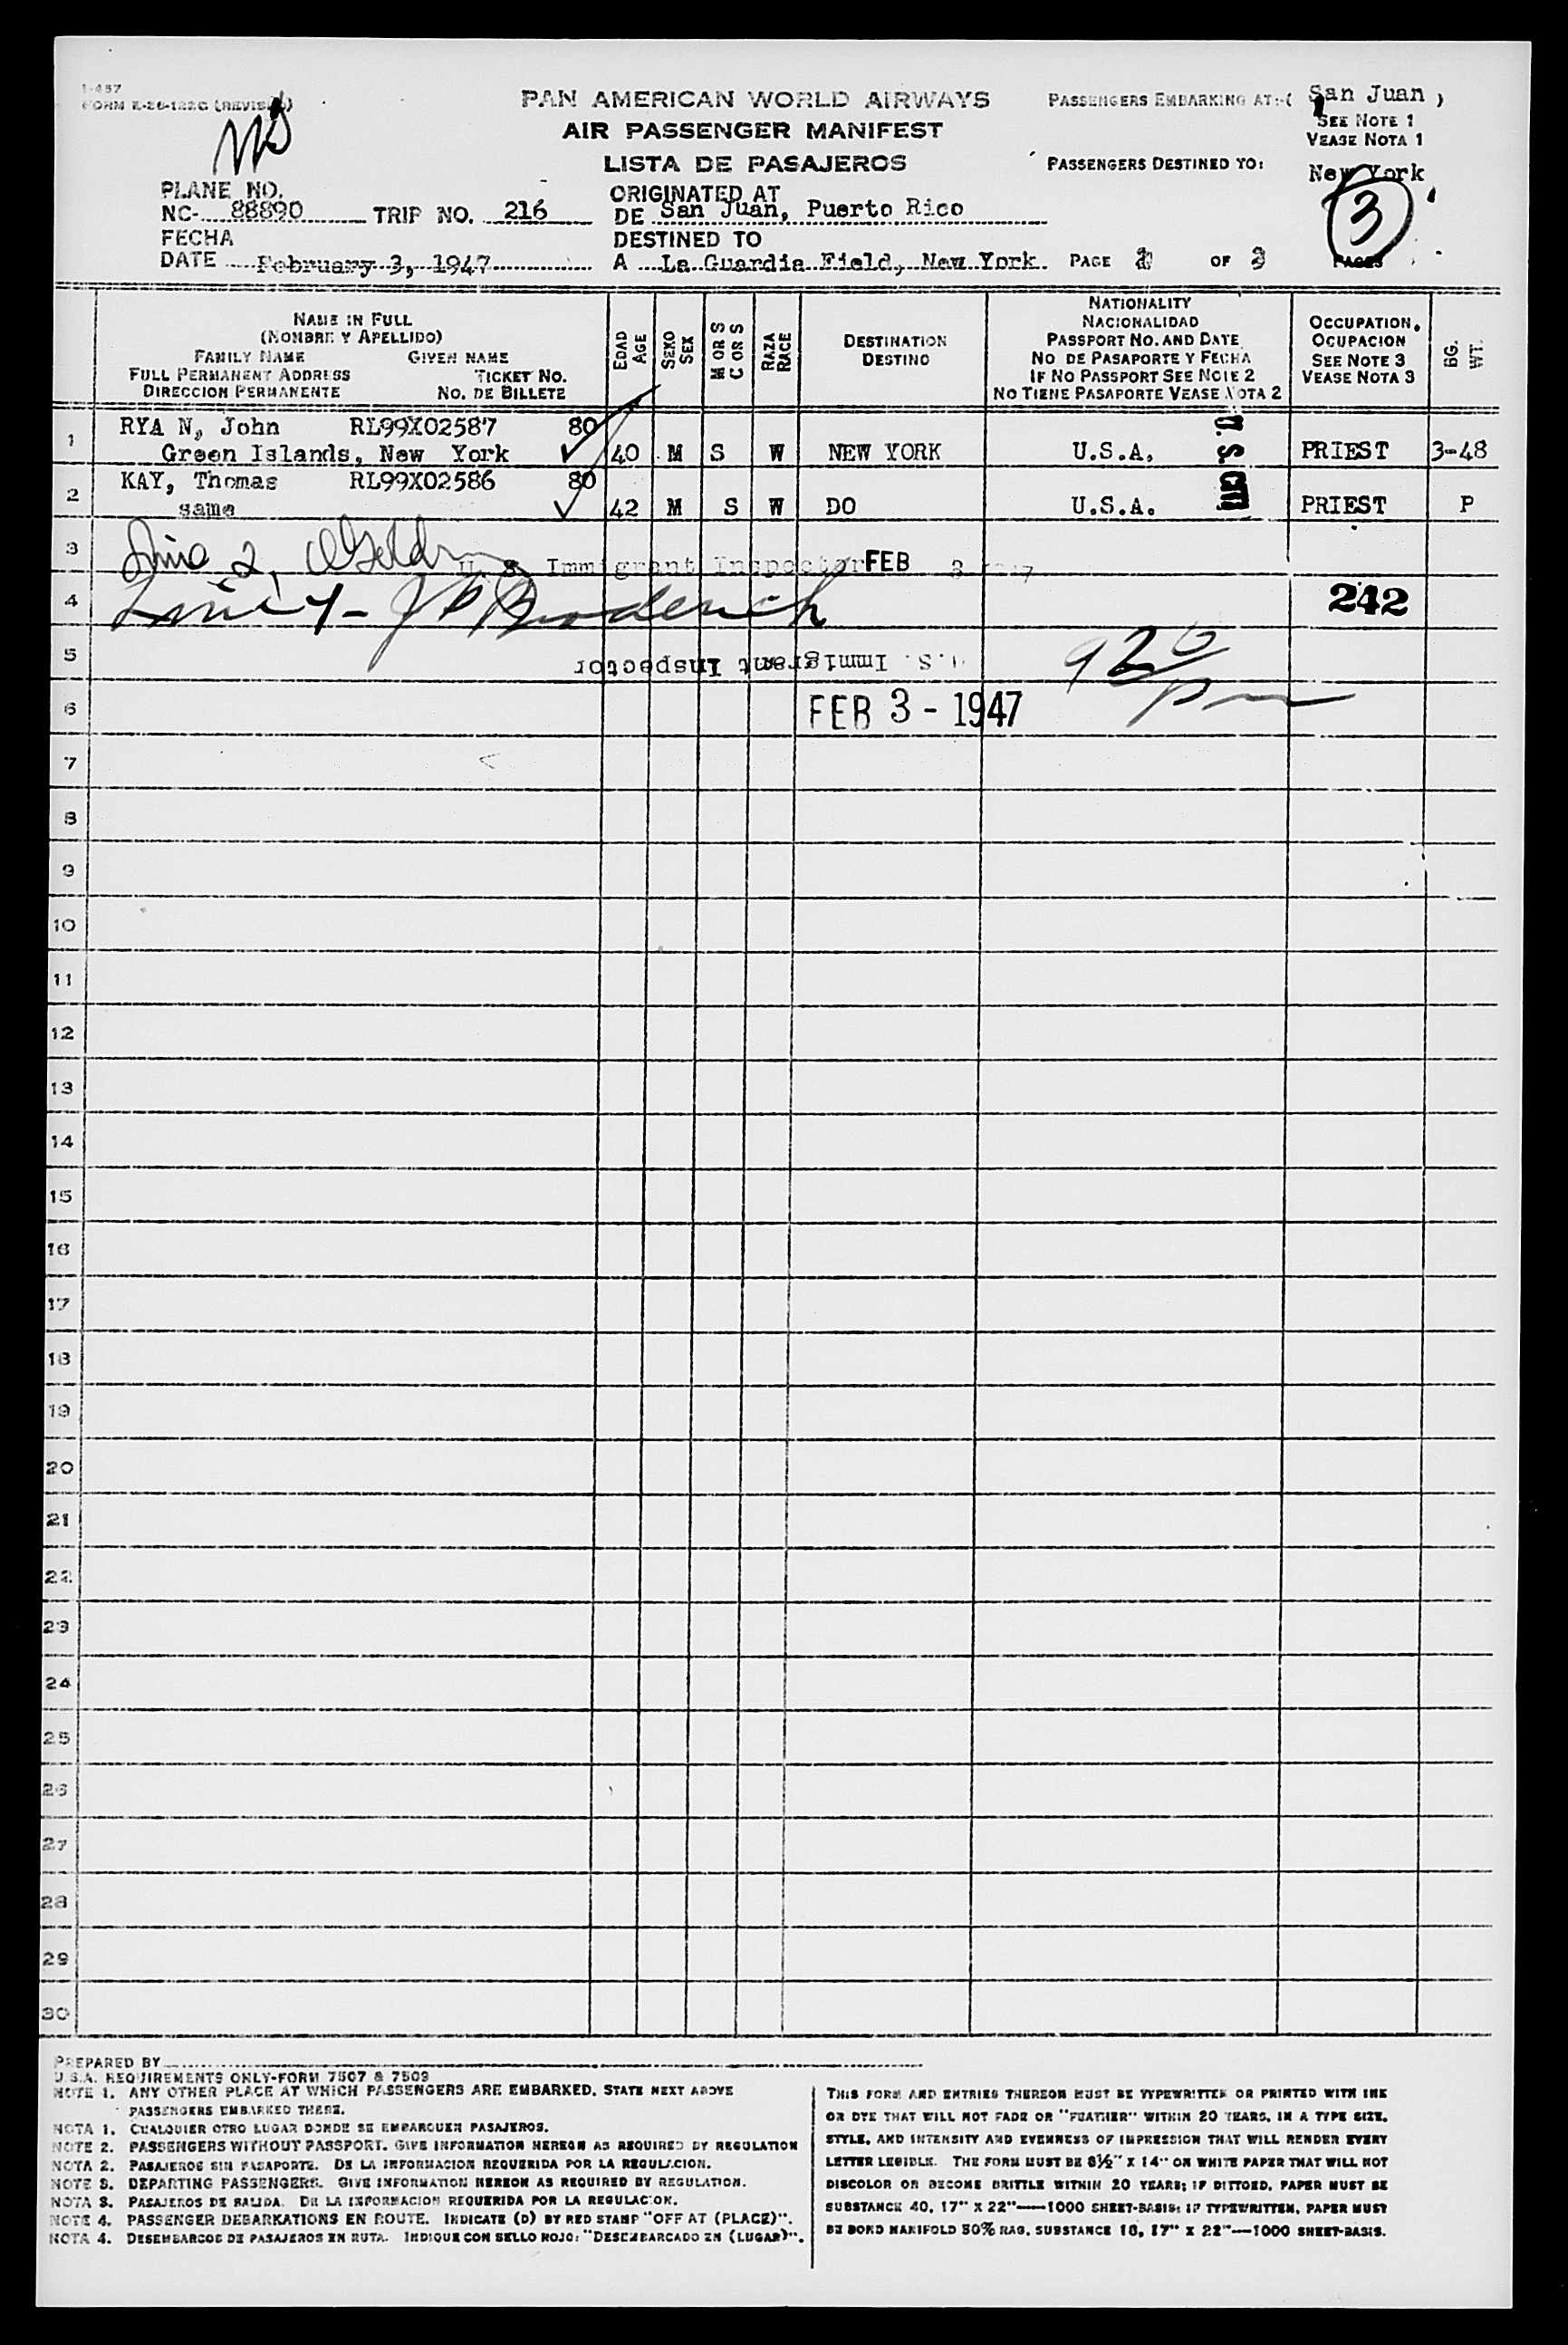 1-457
FORM E-26-122C (REVISED)
PAN AMERICAN WORLD AIRWAYS
AIR PASSENGER MANIFEST
LISTA DE PASAJEROS
PASSENGERS EMBARKING AT:-( San Juan )
SEE NOTE 1
VEASE NOTA 1
PASSENGERS DESTINED TO:
New York
3
PLANE NO.
NC- 88890 TRIP NO. 216
ORIGINATED AT
DE San Juan, Puerto Rico
FECHA
DATE February 3, 1947
DESTINED TO
A La Guardia Field, New York PAGE OF PAGES
NAME IN FULL
(NOMBRE Y APELLIDO)
FAMILY NAME GIVEN NAME
FULL PERMANENT ADDRESS TICKET NO.
DIRECCION PERMANENTE NO. DE BILLETE
EDAD
AGE
SEXO
SEX
M OR S
C OR S
RAZA
RACE
DESTINATION
DESTINO
NATIONALITY
NACIONALIDAD
PASSPORT NO. AND DATE
NO DE PASAPORTE Y FECHA
IF NO PASSPORT SEE NOTE 2
NO TIENE PASAPORTE VEASE NOTA 2
OCCUPATION.
OCUPACION
SEE NOTE 3
VEASE NOTA 3
BG.
WT.
1 RYA N, John RL99X02587 80
Green Islands, New York 40 M S W NEW YORK U.S.A. U.S. CIT PRIEST 3-48
2 KAY, Thomas RL99X02586 80
same 42 M S W DO U.S.A. PRIEST P
3 Line 2, U. S. Immigrant Inspector FEB 3 1947
4 Line 1 - J P Broderick 242
5 U.S. Immigrant Inspector 920
pm
6 FEB 3 - 1947
7
8
9
10
11
12
13
14
15
16
17
18
19
20
21
22
23
24
25
26
27
28
29
30
PREPARED BY
U.S.A. REQUIREMENTS ONLY-FORM 7507 & 7509
NOTE 1. ANY OTHER PLACE AT WHICH PASSENGERS ARE EMBARKED. STATE NEXT ABOVE
PASSENGERS EMBARKED THERE.
NOTA 1. CUALQUIER OTRO LUGAR DONDE SE EMBARQUEN PASAJEROS.
NOTE 2. PASSENGERS WITHOUT PASSPORT. GIVE INFORMATION HEREON AS REQUIRED BY REGULATION
NOTA 2. PASAJEROS SIN PASAPORTE. DE LA INFORMACION REQUERIDA POR LA REGULACION.
NOTE 3. DEPARTING PASSENGERS. GIVE INFORMATION HEREON AS REQUIRED BY REGULATION.
NOTA 3. PASAJEROS DE SALIDA. DE LA INFORMACION REQUERIDA POR LA REGULACION.
NOTE 4. PASSENGER DEBARKATIONS EN ROUTE. INDICATE (D) BY RED STAMP "OFF AT (PLACE)".
NOTA 4. DESEMBARCOS DE PASAJEROS EN RUTA. INDIQUE CON SELLO ROJO: "DESEMBARCADO EN (LUGAR)".
THIS FORM AND ENTRIES THEREON MUST BE TYPEWRITTEN OR PRINTED WITH INK
OR DYE THAT WILL NOT FADE OR "FEATHER" WITHIN 20 YEARS, IN A TYPE SIZE,
STYLE, AND INTENSITY AND EVENNESS OF IMPRESSION THAT WILL RENDER EVERY
LETTER LEGIBLE. THE FORM MUST BE 8½" X 14" ON WHITE PAPER THAT WILL NOT
DISCOLOR OR BECOME BRITTLE WITHIN 20 YEARS; IF DITTOED, PAPER MUST BE
SUBSTANCE 40, 17" X 22"—1000 SHEET-BASIS; IF TYPEWRITTEN, PAPER MUST
BE BOND MANIFOLD 50% RAG, SUBSTANCE 16, 17" X 22"—1000 SHEET-BASIS.